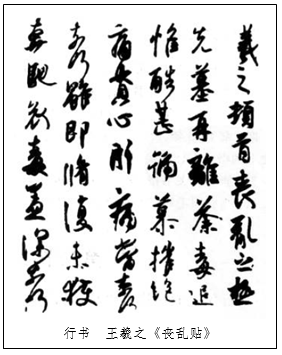 羲之頓首喪亂之極
先墓再離荼毒追
惟酷甚號慕摧絶
痛貫心肝痛當奈何
奈何雖即脩復未獲
奔馳哀毒益深奈何
行书 王羲之《丧乱贴》